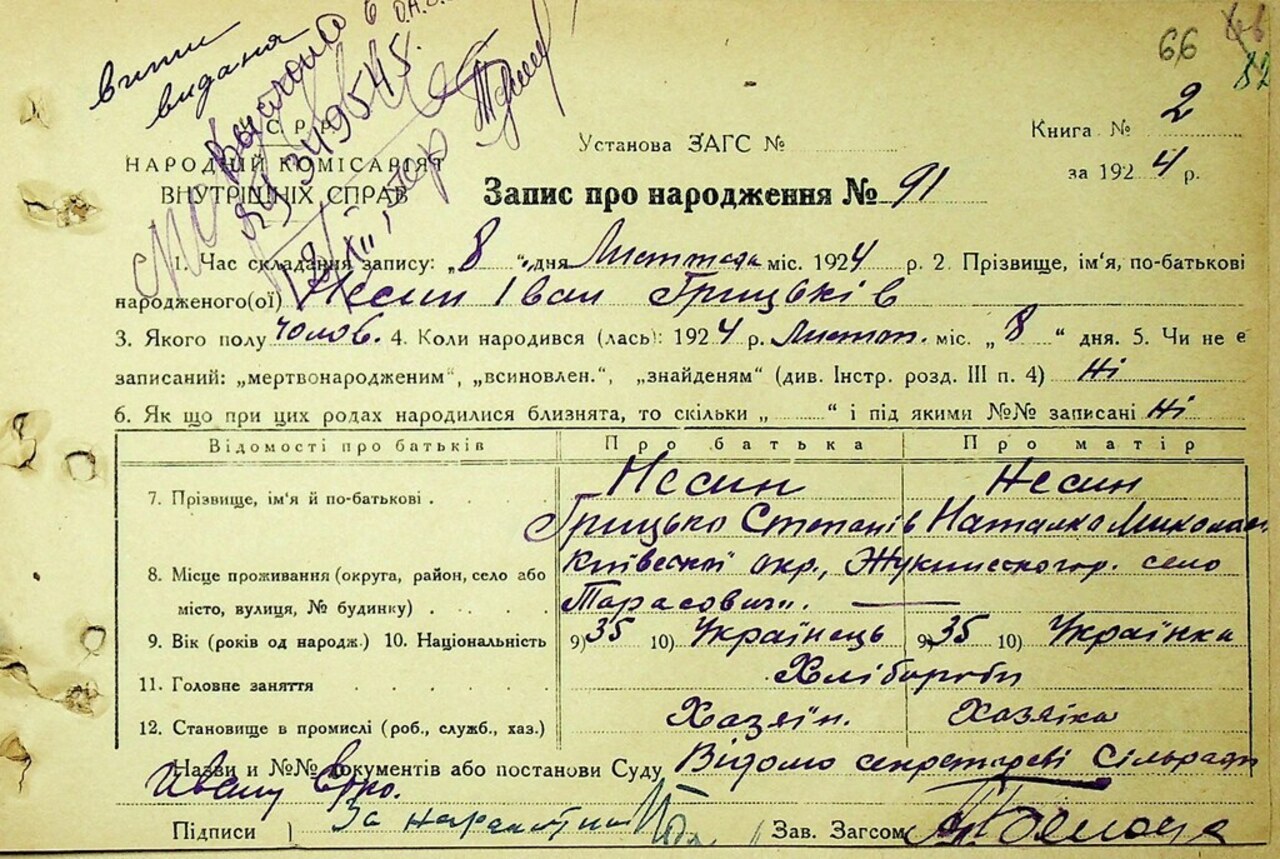 66
82
видана
349545
У.С.Р.Р.
НАРОДНІЙ КОМІСАРІЯТ
ВНУТРІШНІХ СПРАВ
Установа ЗАГС №
Книга № 2
за 1924 р.
Запис про народження № 91
1. Час складання запису: „8“ дня Листопада міс. 1924 р. 2. Прізвище, ім'я, по-батькові
народженого(ої) Несин Іван Грицьків
3. Якого полу чолов. 4. Коли народився (лась): 1924 р. Листоп. міс. „8“ дня. 5. Чи не є
записаний: „мертвонародженим“, „всиновлен.“, „знайденям“ (див. Інстр. розд. III п. 4) Ні
6. Як що при цих родах народилися близнята, то скільки „ “ і під якими №№ записані Ні
Відомості про батьків Про батька Про матір
7. Прізвище, ім'я й по-батькові . Несин Несин
Грицько Степанів Наталка Микола
8. Місце проживання (округа, район, село або Київської окр., село
місто, вулиця, № будинку) . Тарасовичи.
9. Вік (років од народж.) 10. Національність 9) 35 10) Українець 9) 35 10) Українка
11. Головне заняття Хлібороби
12. Становище в промислі (роб., служб., хаз.) Хазяїн. Хазяіка
Назви и №№ документів або постанови Суду Відомо секретареві Сільради
Ивану
Підписи } За Зав. Загсом